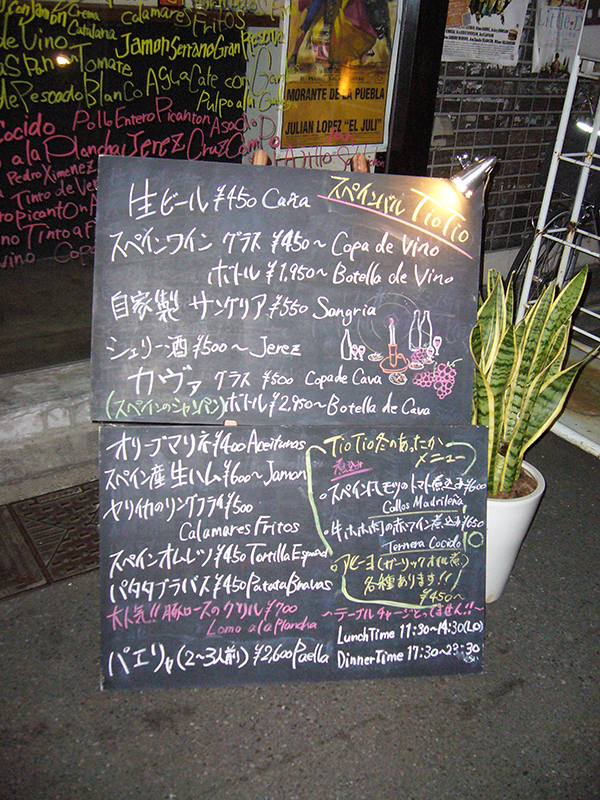 con Jamón Crema Calamares Fritos
de Vino Catalana Jamon Serrano Gran Reserva
Pan con Tomate Agua Cafe con
de Pescado Blanco Pulpo a la
Cocido Pollo Entero Picanton Asado
a la Plancha Jerez Cruzcampo
Pedro Ximenez
Tinto de Ve
Tinto a
vino
MORANTE DE LA PUEBLA
JULIAN LOPEZ "EL JULI"
スペインバル TioTio
生ビール ¥450 Caña
スペインワイン グラス ¥450～ Copa de Vino
ボトル ¥1,950～ Botella de Vino
自家製 サングリア ¥550 Sangria
シェリー酒 ¥500～ Jerez
カヴァ グラス ¥500 Copa de Cava
(スペインのシャンパン) ボトル ¥2,950～ Botella de Cava
オリーブマリネ ¥400 Aceitunas
スペイン産 生ハム ¥600～ Jamon
ヤリイカのリングフライ ¥500
Calamares Fritos
スペインオムレツ ¥450 Tortilla Española
パタタブラバス ¥450 Patata Bravas
大人気!! 豚ロースのグリル ¥700
Lomo a la Plancha
パエリャ (2～3人前) ¥2,600 Paella
TioTio 冬のあったか
メニュー
煮込み
・スペインモツのトマト煮込み ¥600
Callos Madrileña
・牛ホホ肉の赤ワイン煮込み ¥650
Ternera Cocido
・アヒージョ (ガーリックオイル煮)
各種あります!!
¥450～
～テーブルチャージとってません!!～
Lunch Time 11:30～14:30 (LO)
Dinner Time 17:30～23:30